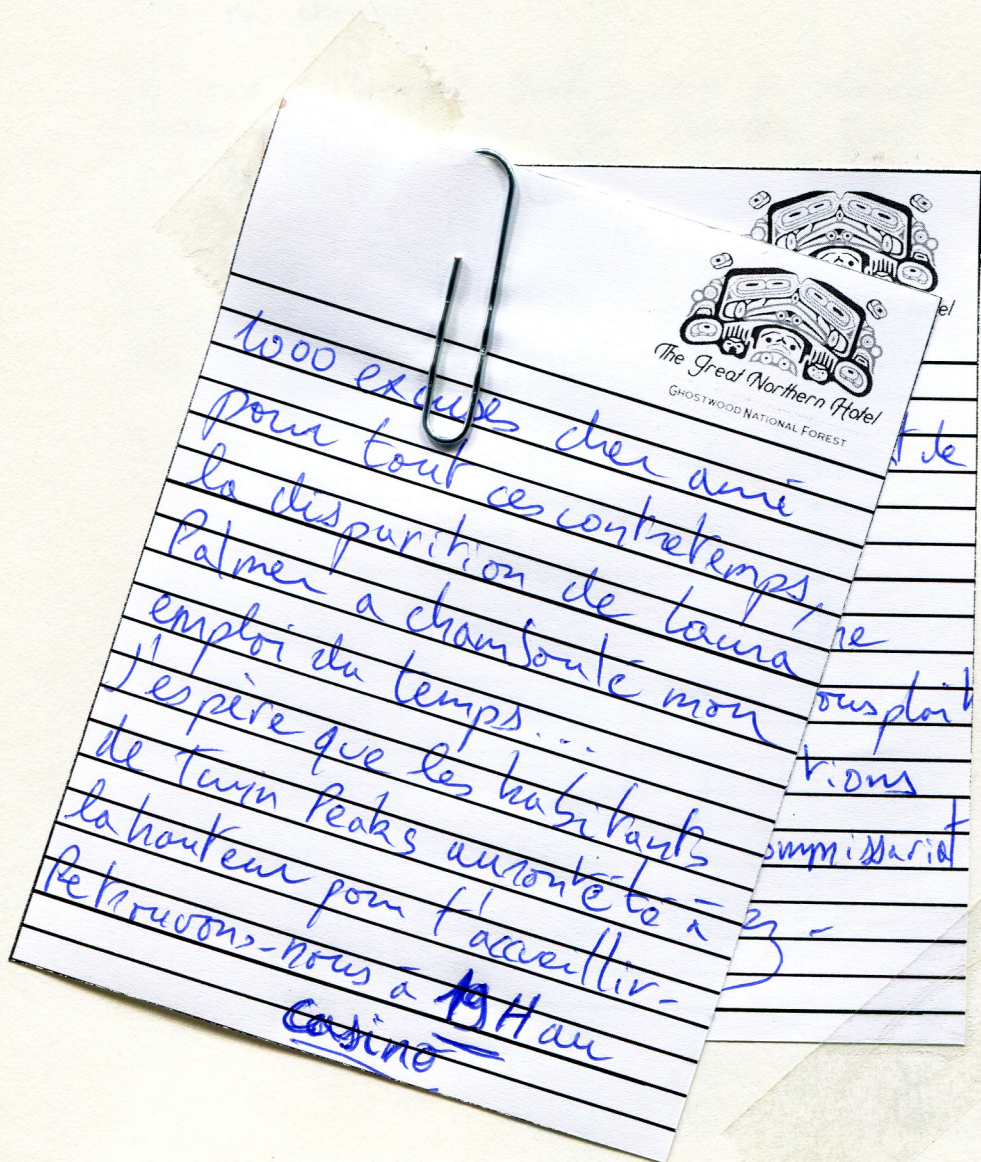 The Great Northern Hotel
GHOSTWOOD NATIONAL FOREST
1000 excuses cher ami
pour tout ces contretemps,
la disparition de Laura
Palmer a chamboulé mon
emploi du temps...
J'espère que les habitants
de Twin Peaks auront été à
la hauteur pour t'accueillir-
Retrouvons-nous à 19H au
casino
el
t de
ne
ous plait
tions
ommissariat